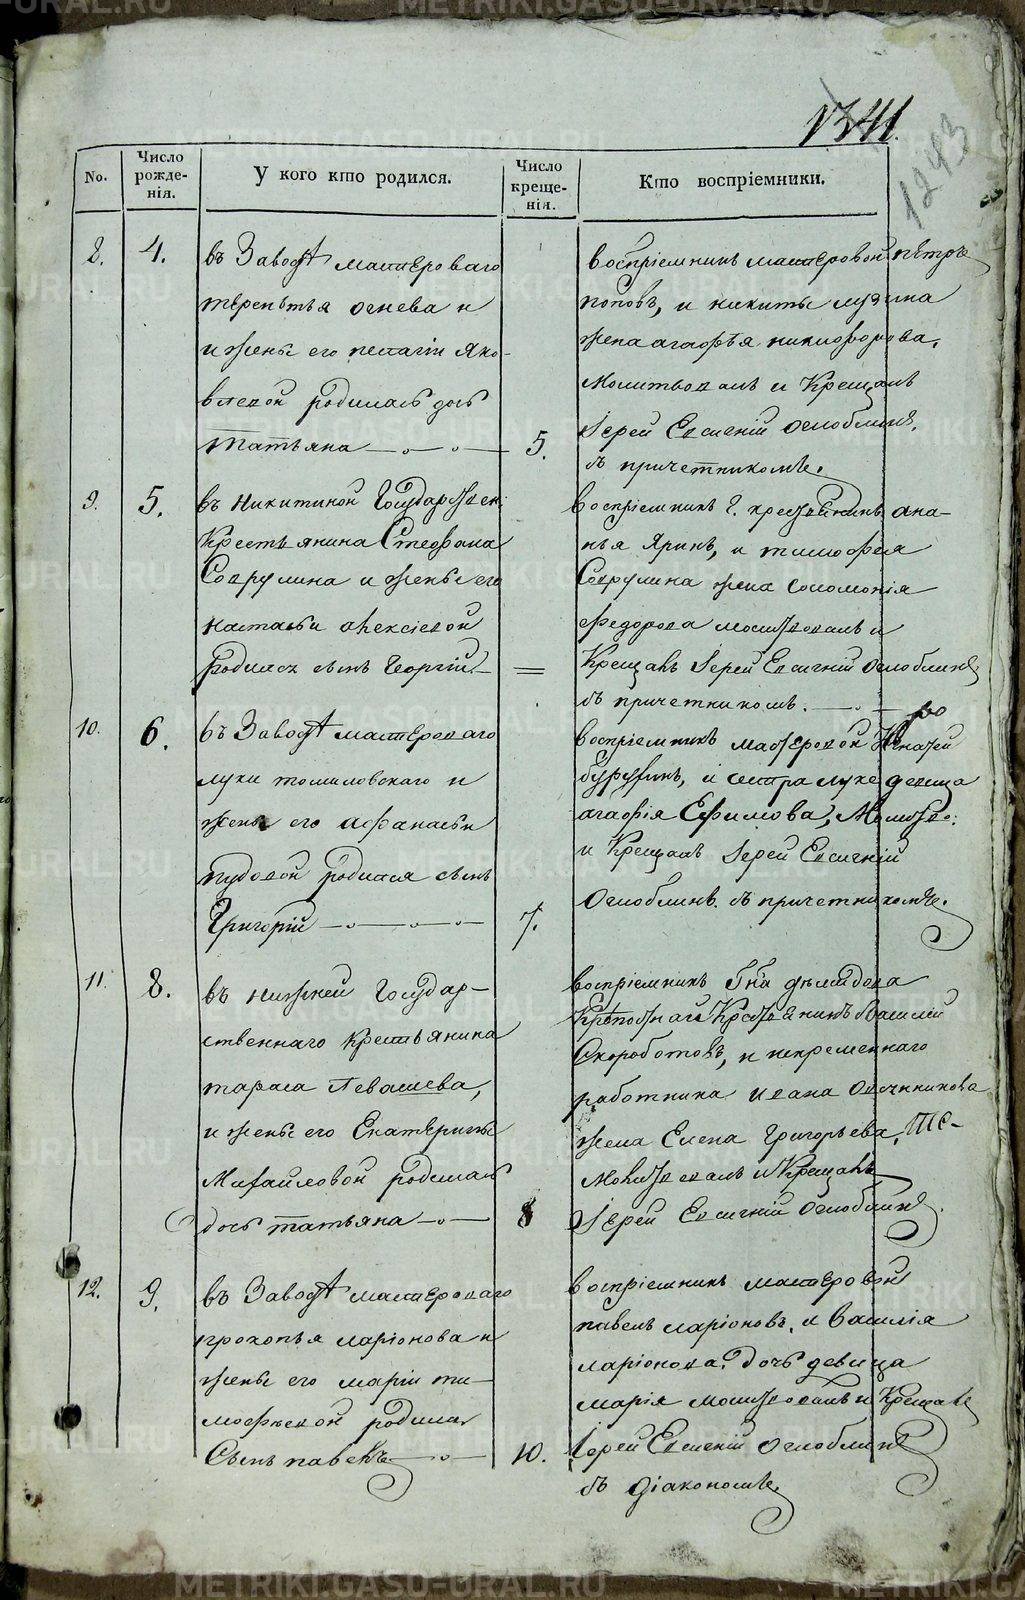 METRIKI.GASU-URAL.RU
1341.
1243
No.
Число рожденія.
У кого кто родился.
Число крещенія.
Кто воспріемники.
8.
4.
въ Заводѣ мастероваго
терентья огнева и
и жены его пелагіи Яко-
влевой родилась дочь
Татьяна
5.
воспріемникъ мастеровой петръ
поповъ, и никиты лузина
жена агафья никифорова,
Молитвовалъ и Крещалъ
Іерей Евгеній Оглоблинъ,
съ причетникомъ.
9.
5.
въ Никитиной Государствен:
Крестьянина Стефана
Соврулина и жены его
настасьи алексіевой
родился сынъ Георгій
=
воспріемникъ Г. крестьянинъ ана-
нья Яринъ, и тимофея
Соврулина жена соломонія
федорова молитвовалъ и
Крещалъ Іерей Евгеній Оглоблинъ
съ причетникомъ.
10.
6.
въ Заводѣ мастероваго
луки томиловскаго и
жены его афанасьи
пудовой родился сынъ
Григорій
7.
воспріемникъ мастеровой Игнатей
и сестра луке девица
агафія Ефимова, Молитво:
и Крещалъ Іерей Евгеній
Оглоблинъ съ причетникомъ.
11.
8.
въ нижней Государ-
ственнаго Крестьянина
тараса Левашева,
и жены его Екатерины
Михайловой родилась
дочь татьяна
8
воспріемникъ Гна демидова
Крѣпостнаго Крестьянинъ Василій
Скороботовъ, и непременнаго
работника ивана Овчинникова
жена Елена Григорьева,
Молитвовалъ и Крещалъ
Іерей Евгеній Оглоблинъ.
12.
9.
въ Заводѣ мастероваго
прокопья ларіонова и
жены его маріи ти-
мофеевой родился
Сынъ павелъ
10.
воспріемникъ мастеровой
павелъ ларіоновъ, и василія
ларіонова дочь девица
марія молитвовалъ и Крещалъ
Іерей Евгеній Оглоблинъ
съ діакономъ.
METRIKI.GASU-URAL.RU